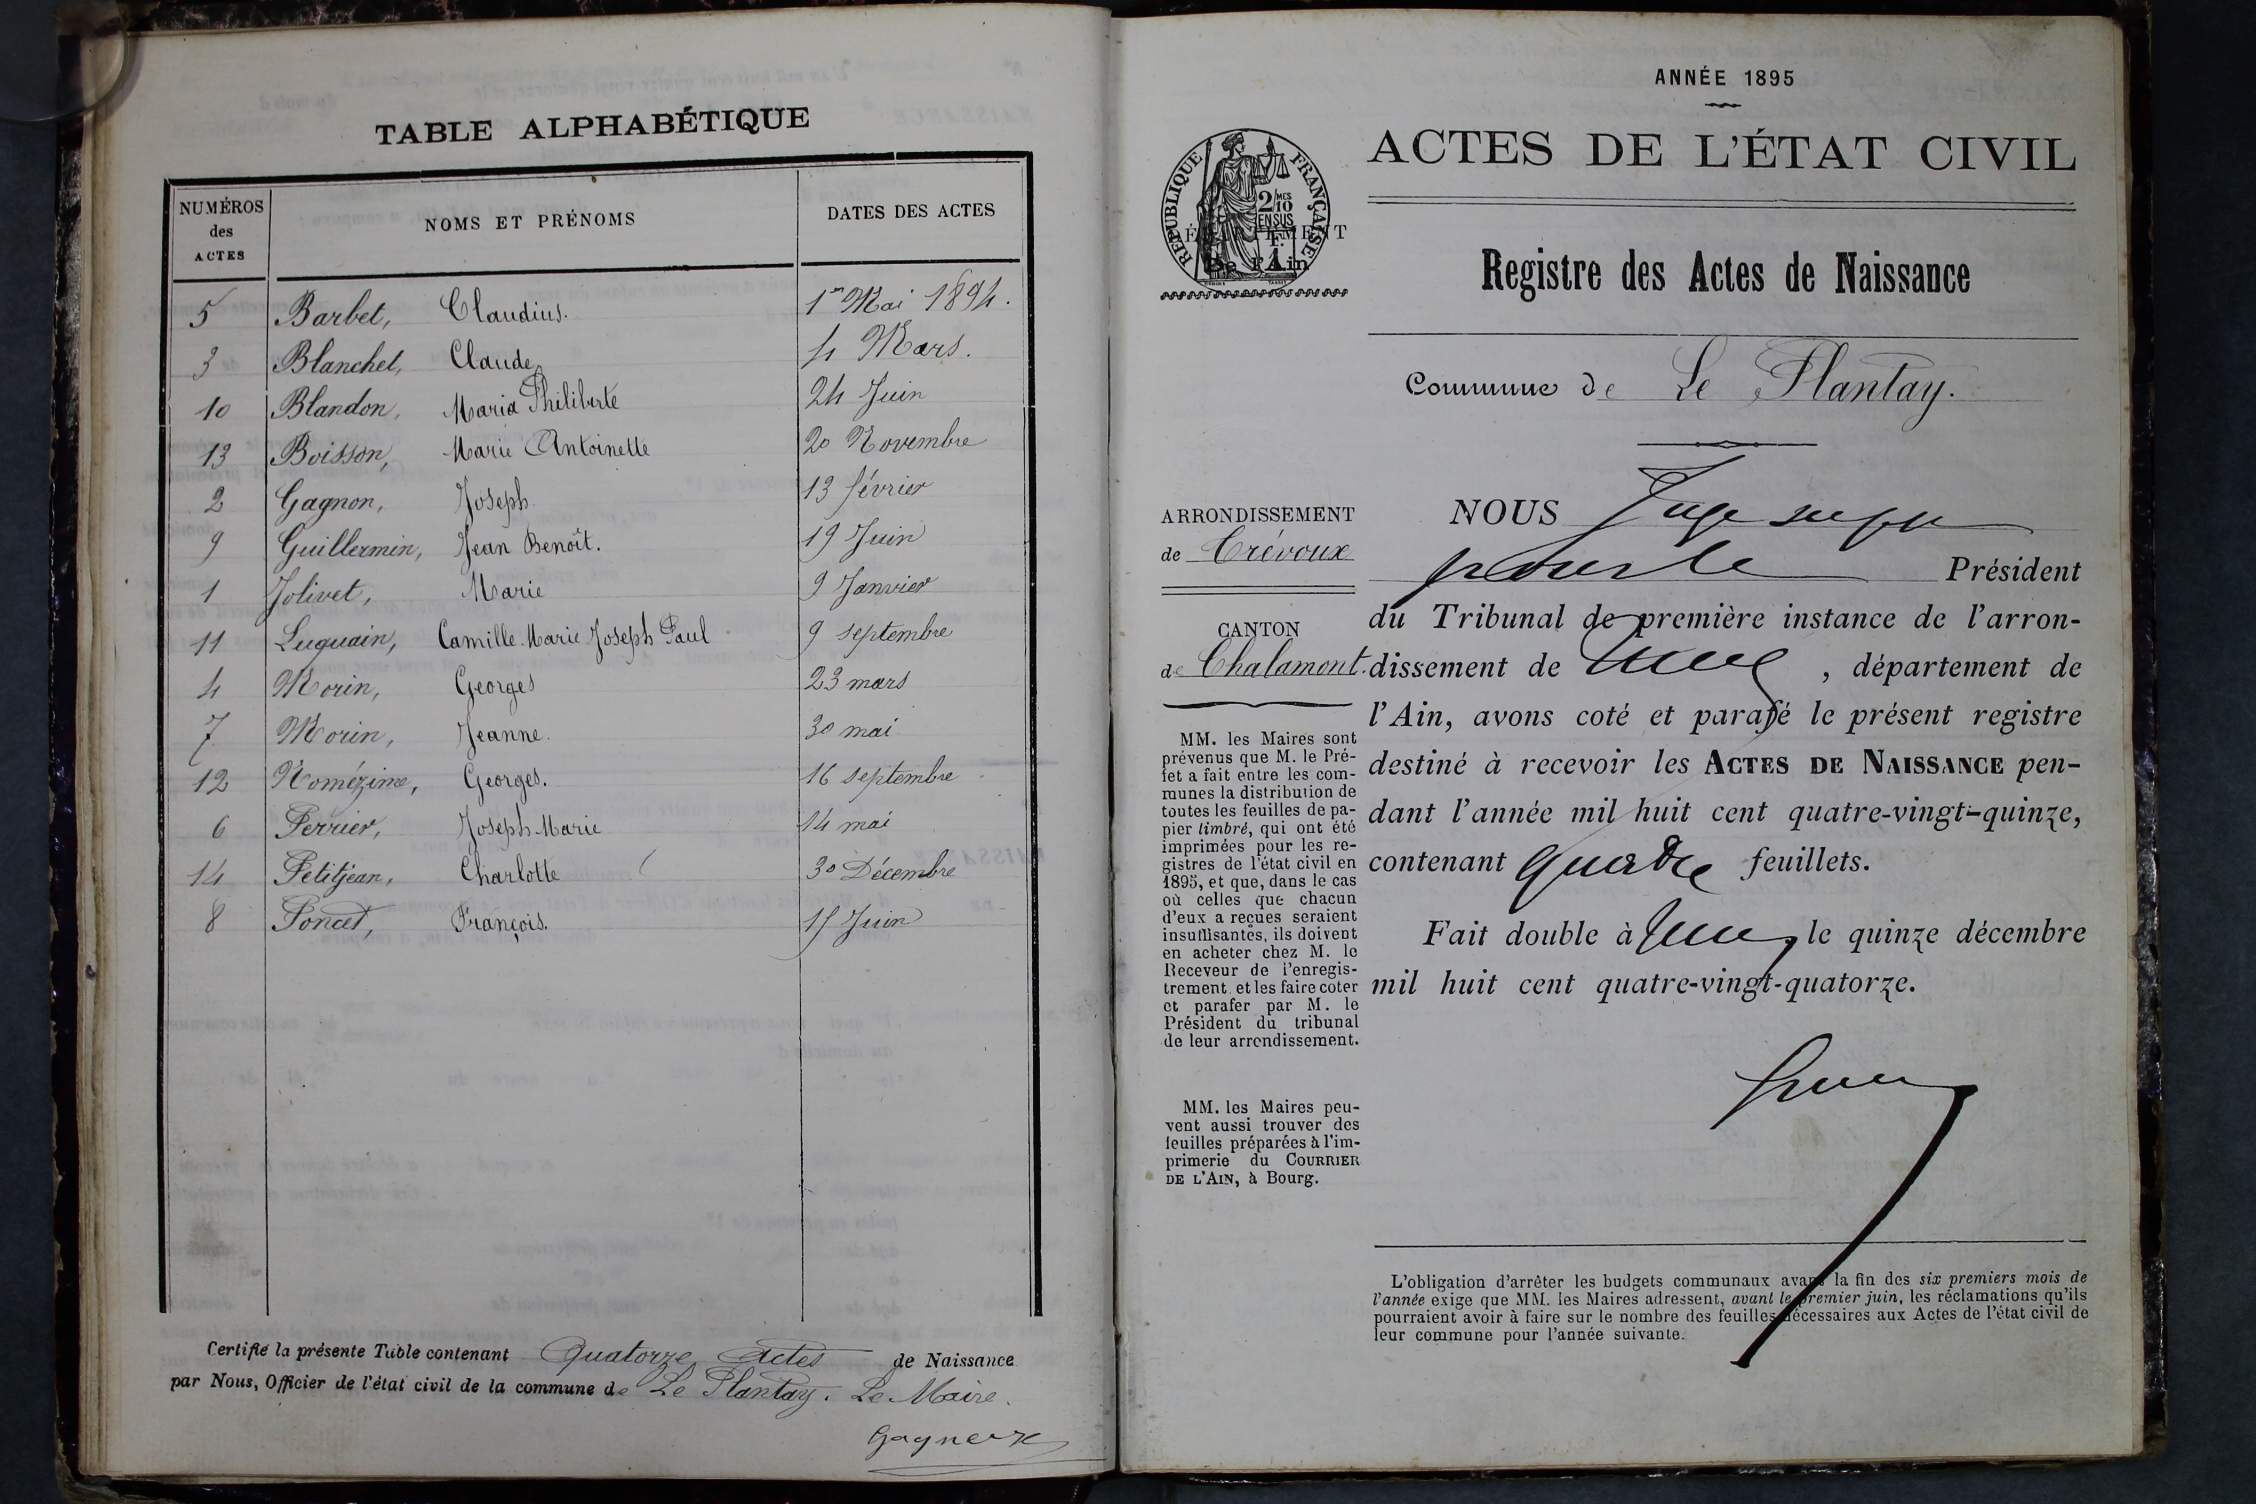 TABLE ALPHABÉTIQUE
NUMÉROS des ACTES
NOMS ET PRÉNOMS
DATES DES ACTES
5 Barbet, Claudius. 1er Mai 1894.
3 Blanchet, Claude 4 Mars.
10 Blandon, Maria Philiberte 24 Juin
13 Boisson, Marie Antoinette 20 Novembre
2 Gagnon, Joseph. 13 février
9 Guillermin, Jean Benoît. 19 Juin
1 Jolivet, Marie 9 Janvier
11 Luguain, Camille Marie Joseph Paul 9 septembre
4 Morin, Georges 23 mars
7 Morin, Jeanne. 30 mai
12 Nomézime, Georges. 16 septembre
6 Perrier, Joseph Marie 14 mai
14 Petitjean, Charlotte 30 Décembre
8 Poncet, François. 15 Juin
Certifié la présente Table contenant Quatorze actes de Naissance
par Nous, Officier de l'état civil de la commune de Le Plantay. Le Maire.
ANNÉE 1895
ACTES DE L'ÉTAT CIVIL
RÉPUBLIQUE FRANÇAISE
2/10 MES
EN SUS
1 F.
DÉPARTEMENT
De l'Ain
Registre des Actes de Naissance
Commune de Le Plantay.
ARRONDISSEMENT
de Trévoux
CANTON
de Chalamont.
MM. les Maires sont
prévenus que M. le Pré-
fet a fait entre les com-
munes la distribution de
toutes les feuilles de pa-
pier timbré, qui ont été
imprimées pour les re-
gistres de l'état civil en
1895, et que, dans le cas
où celles que chacun
d'eux a reçues seraient
insuffisantes, ils doivent
en acheter chez M. le
Receveur de l'enregis-
trement et les faire coter
et parafer par M. le
Président du tribunal
de leur arrondissement.
MM. les Maires peu-
vent aussi trouver des
feuilles préparées à l'im-
primerie du COURRIER
DE L'AIN, à Bourg.
NOUS Juge supp
pour le Président
du Tribunal de première instance de l'arron-
dissement de , département de
l'Ain, avons coté et parafé le présent registre
destiné à recevoir les ACTES DE NAISSANCE pen-
dant l'année mil huit cent quatre-vingt-quinze,
contenant quatre feuillets.
Fait double à le quinze décembre
mil huit cent quatre-vingt-quatorze.
L'obligation d'arrêter les budgets communaux avant la fin des six premiers mois de
l'année exige que MM. les Maires adressent, avant le premier juin, les réclamations qu'ils
pourraient avoir à faire sur le nombre des feuilles nécessaires aux Actes de l'état civil de
leur commune pour l'année suivante.